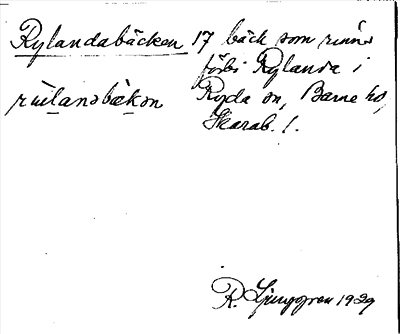 Rylandabäcken 17 bäck som rinner
förbi Rylanda i
Ryda sn, Barne hd,
Skarab. l.
R. Ljunggren 1929